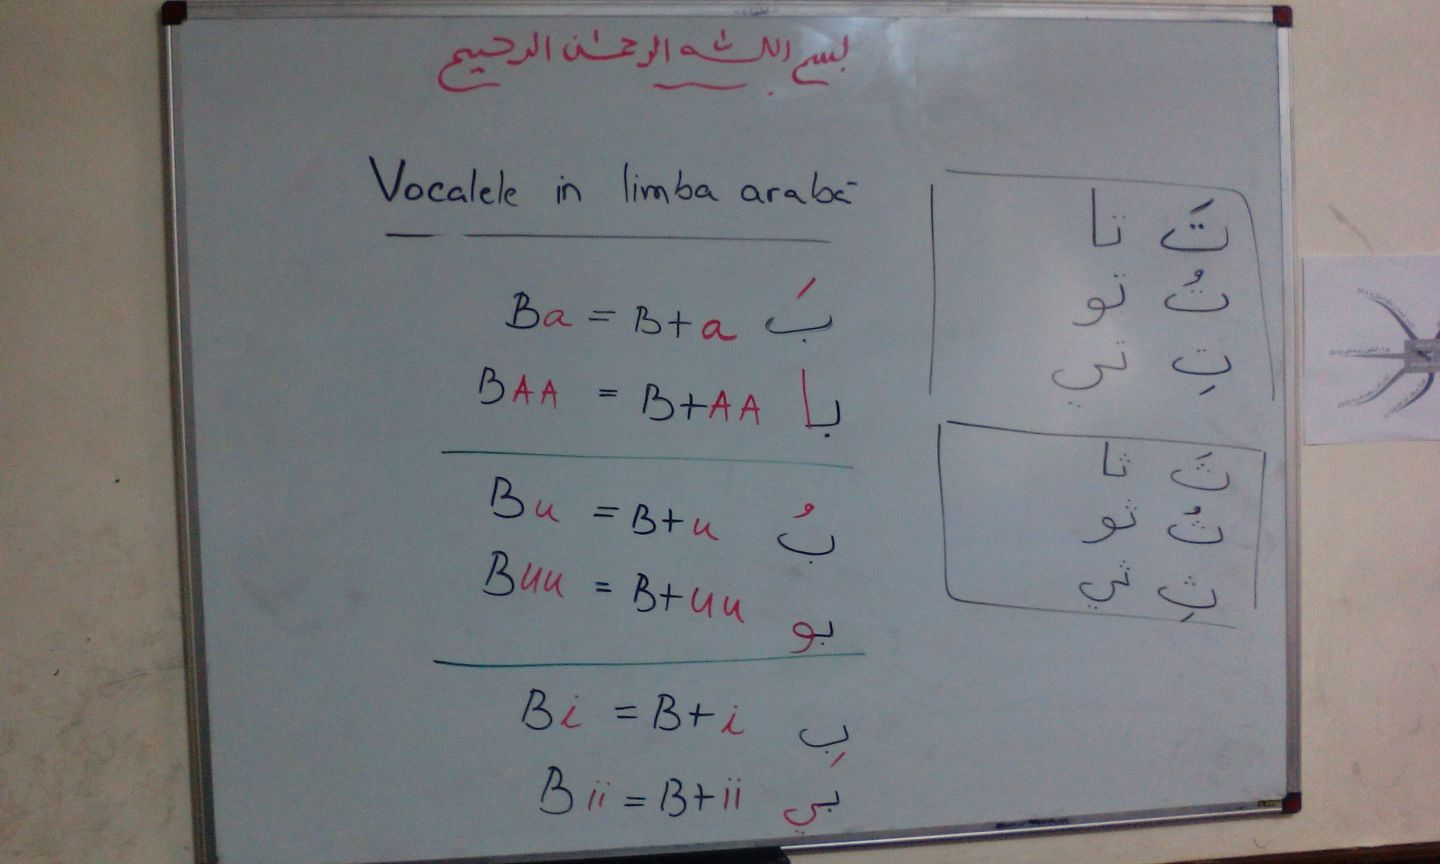 بسم الله الرحمٰن الرحيم
Vocalele in limba arabă
Ba = B+a بَ
BAA = B+AA با
Bu = B+u بُ
Buu = B+uu بو
Bi = B+i بِ
Bii = B+ii بي
تَ تا
تُ تو
تِ تي
ثَ ثا
ثُ ثو
ثِ ثي